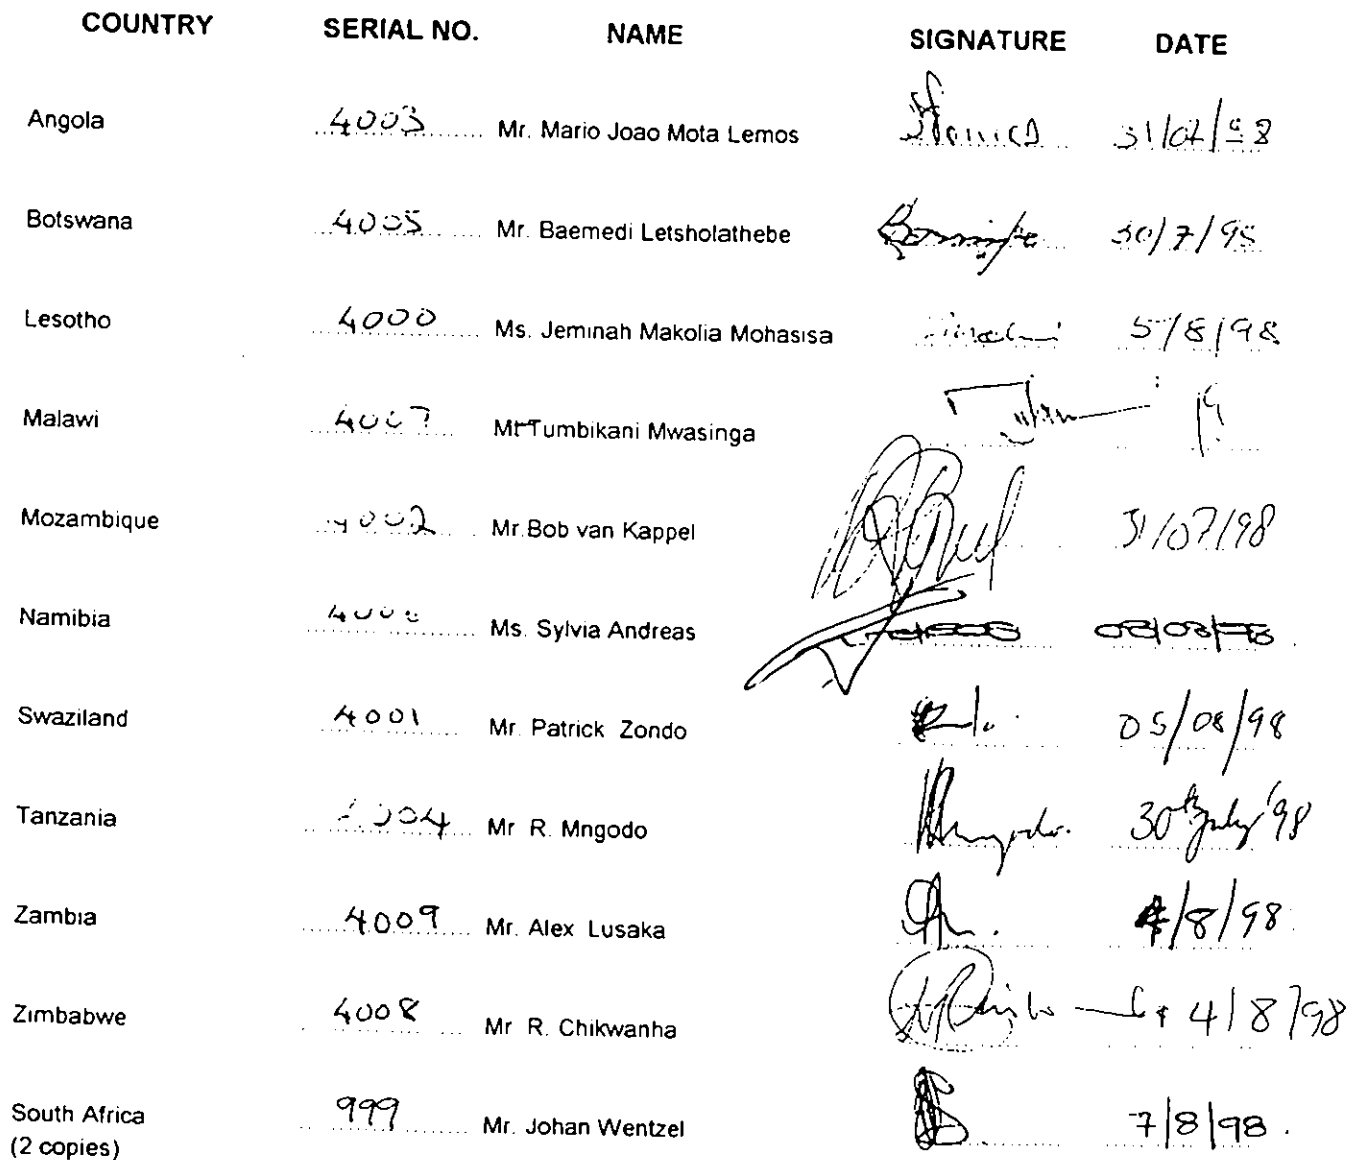 COUNTRY SERIAL NO. NAME SIGNATURE DATE
Angola 4003 Mr. Mario Joao Mota Lemos
Botswana 4005 Mr. Baemedi Letsholathebe 30/7/98
Lesotho 4000 Ms. Jeminah Makolia Mohasisa 5/8/98
Malawi 4007 Mr Tumbikani Mwasinga
Mozambique 4002 Mr.Bob van Kappel 31/07/98
Namibia Ms. Sylvia Andreas
Swaziland 4001 Mr. Patrick Zondo 05/08/98
Tanzania 4004 Mr R. Mngodo Mngodo. 30th July '98
Zambia 4009 Mr. Alex Lusaka 4/8/98
Zimbabwe 4008 Mr R. Chikwanha 4/8/98
South Africa 999 Mr. Johan Wentzel 7/8/98.
(2 copies)